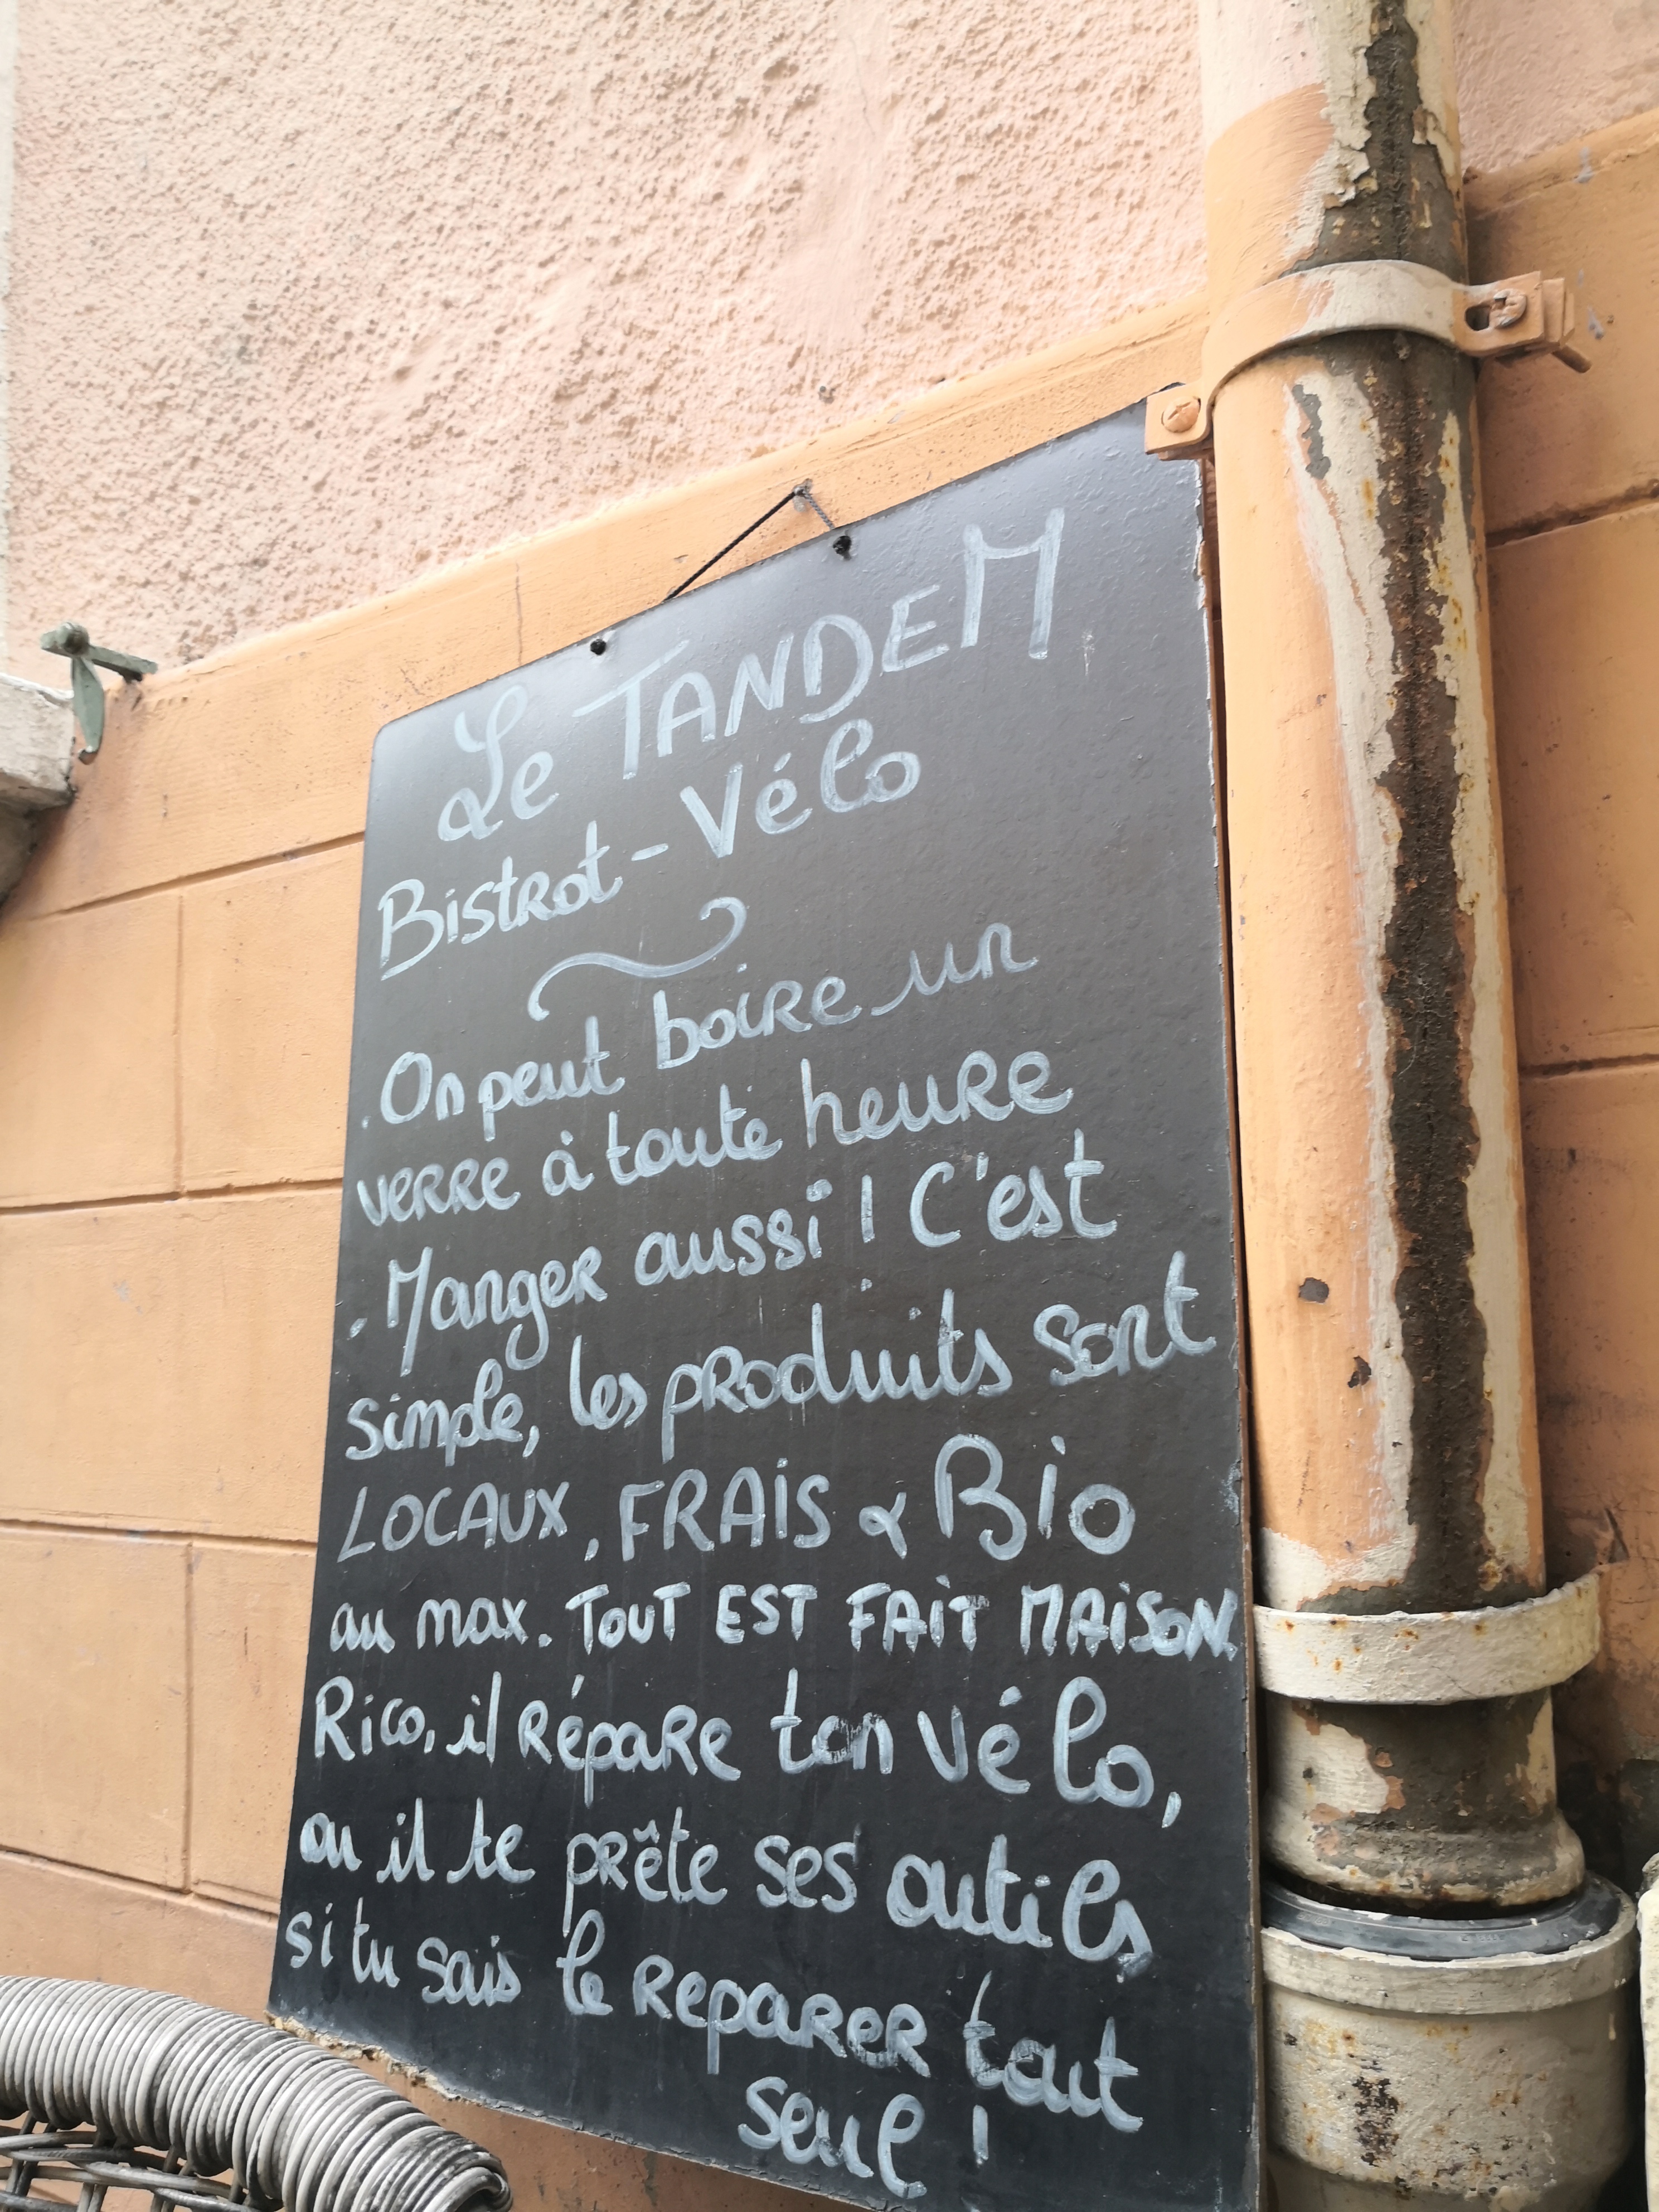 Le TANDEM
Bistrot - Vélo
. On peut boire un
verre à toute heure
. Manger aussi ! C'est
simple, les produits sont
LOCAUX, FRAIS & Bio
au max. TOUT EST FAIT MAISON.
Rico, il répare ton vélo,
ou il te prête ses outils
si tu sais le reparer tout
seul !